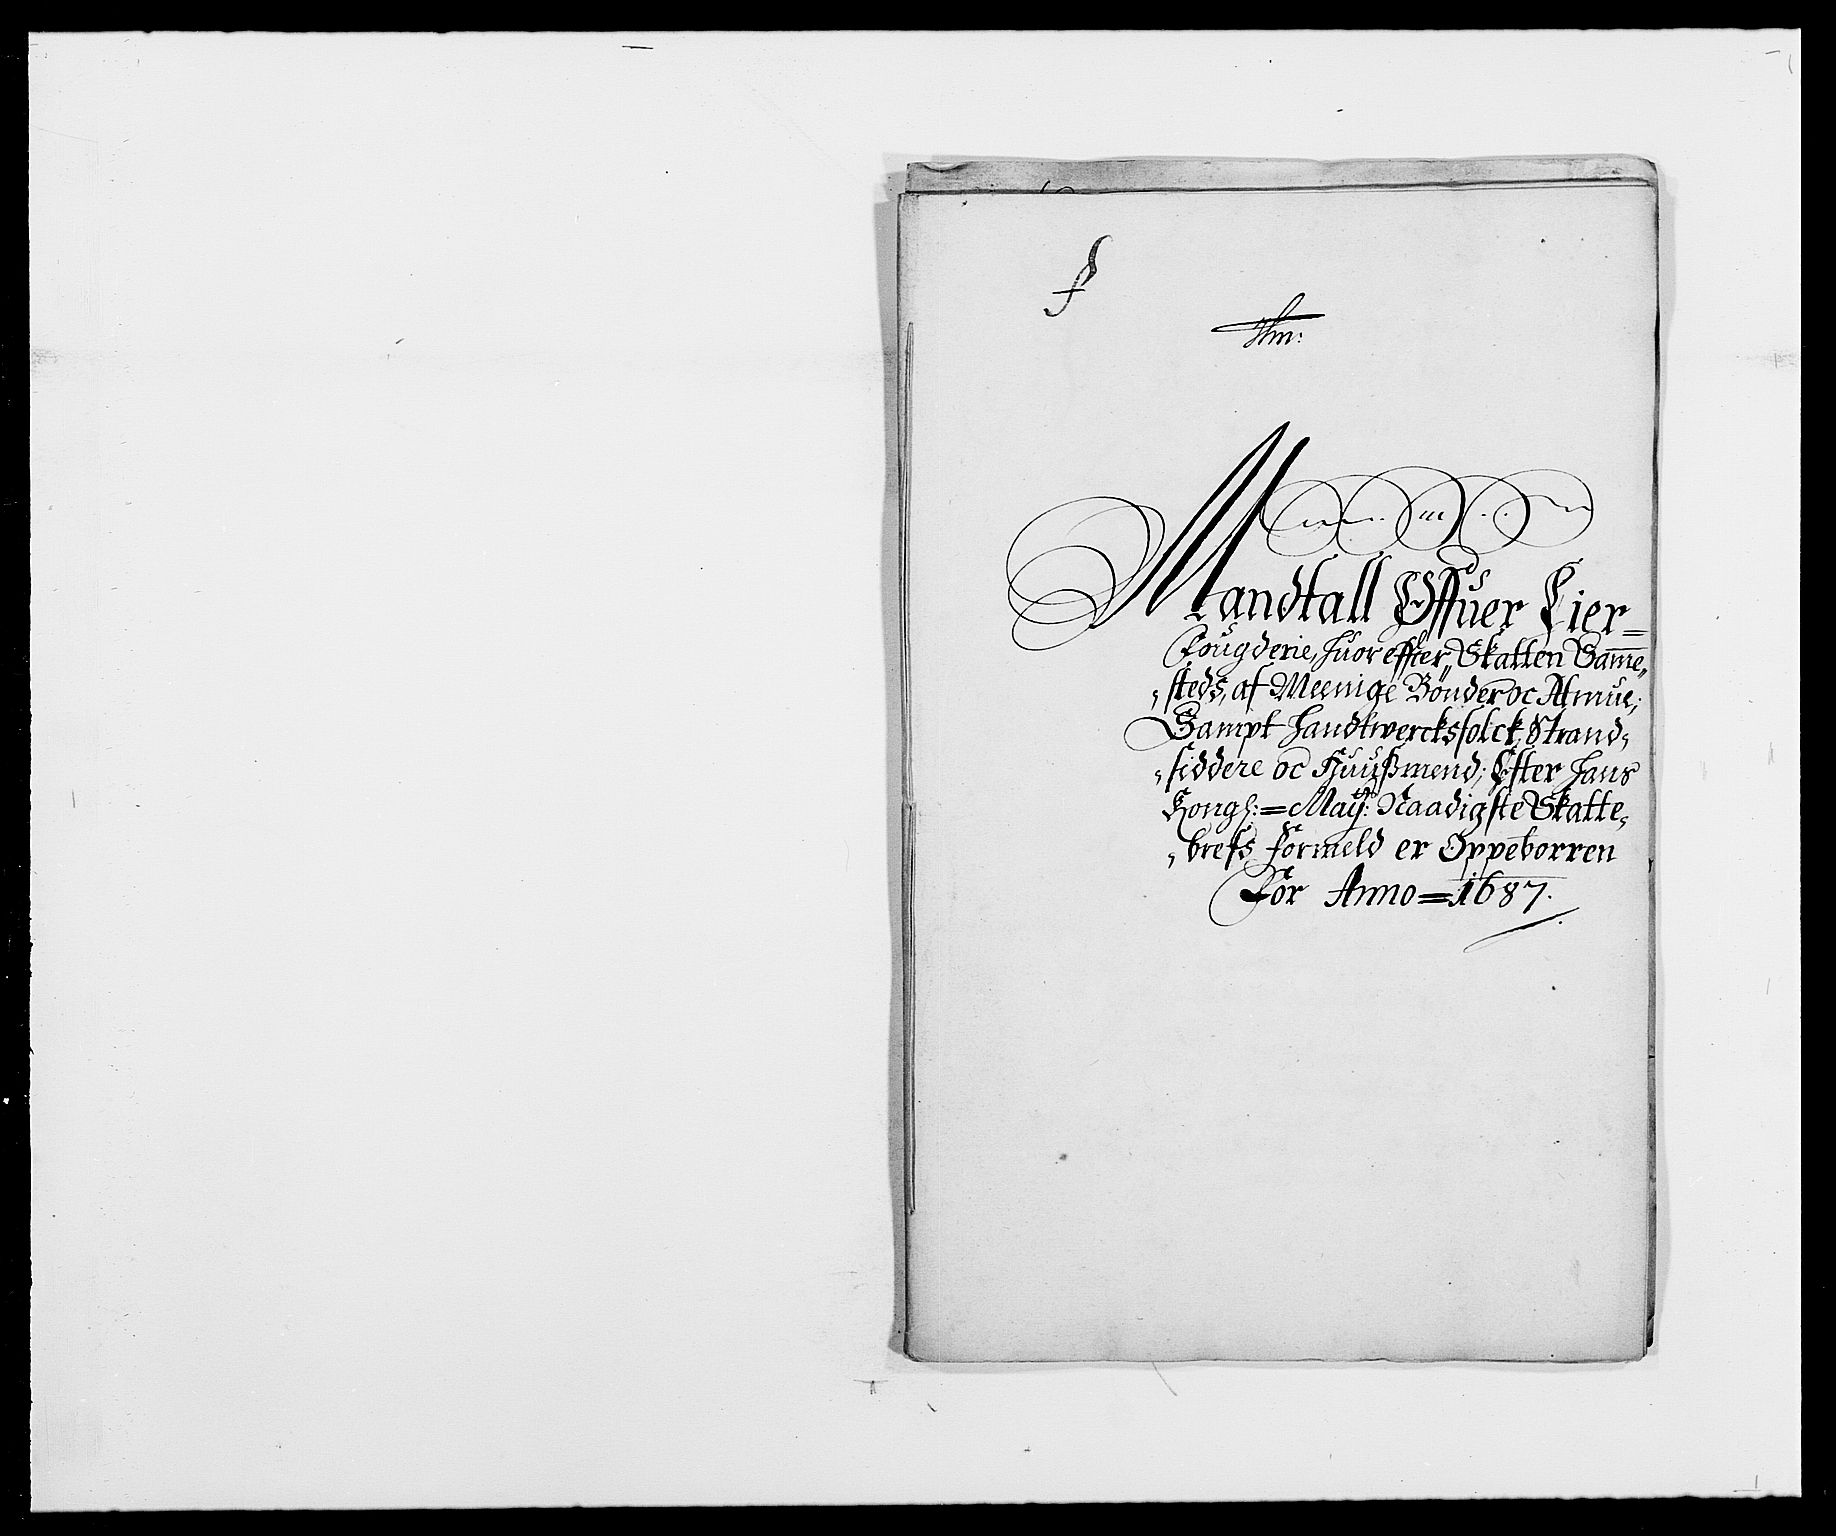 Mandtall Offuer Lier=
fougderie, huor effter, Skatten Same„
„steds, af Meenige Bönder oc Almue,
Sampt handtwercksfolck, Strand„
„siddere oc Huußmend, Efter hans
Kongl:=Mayts: Naadigste Skatte„
„brefs formeld er Oppeborren
For Anno=1687.